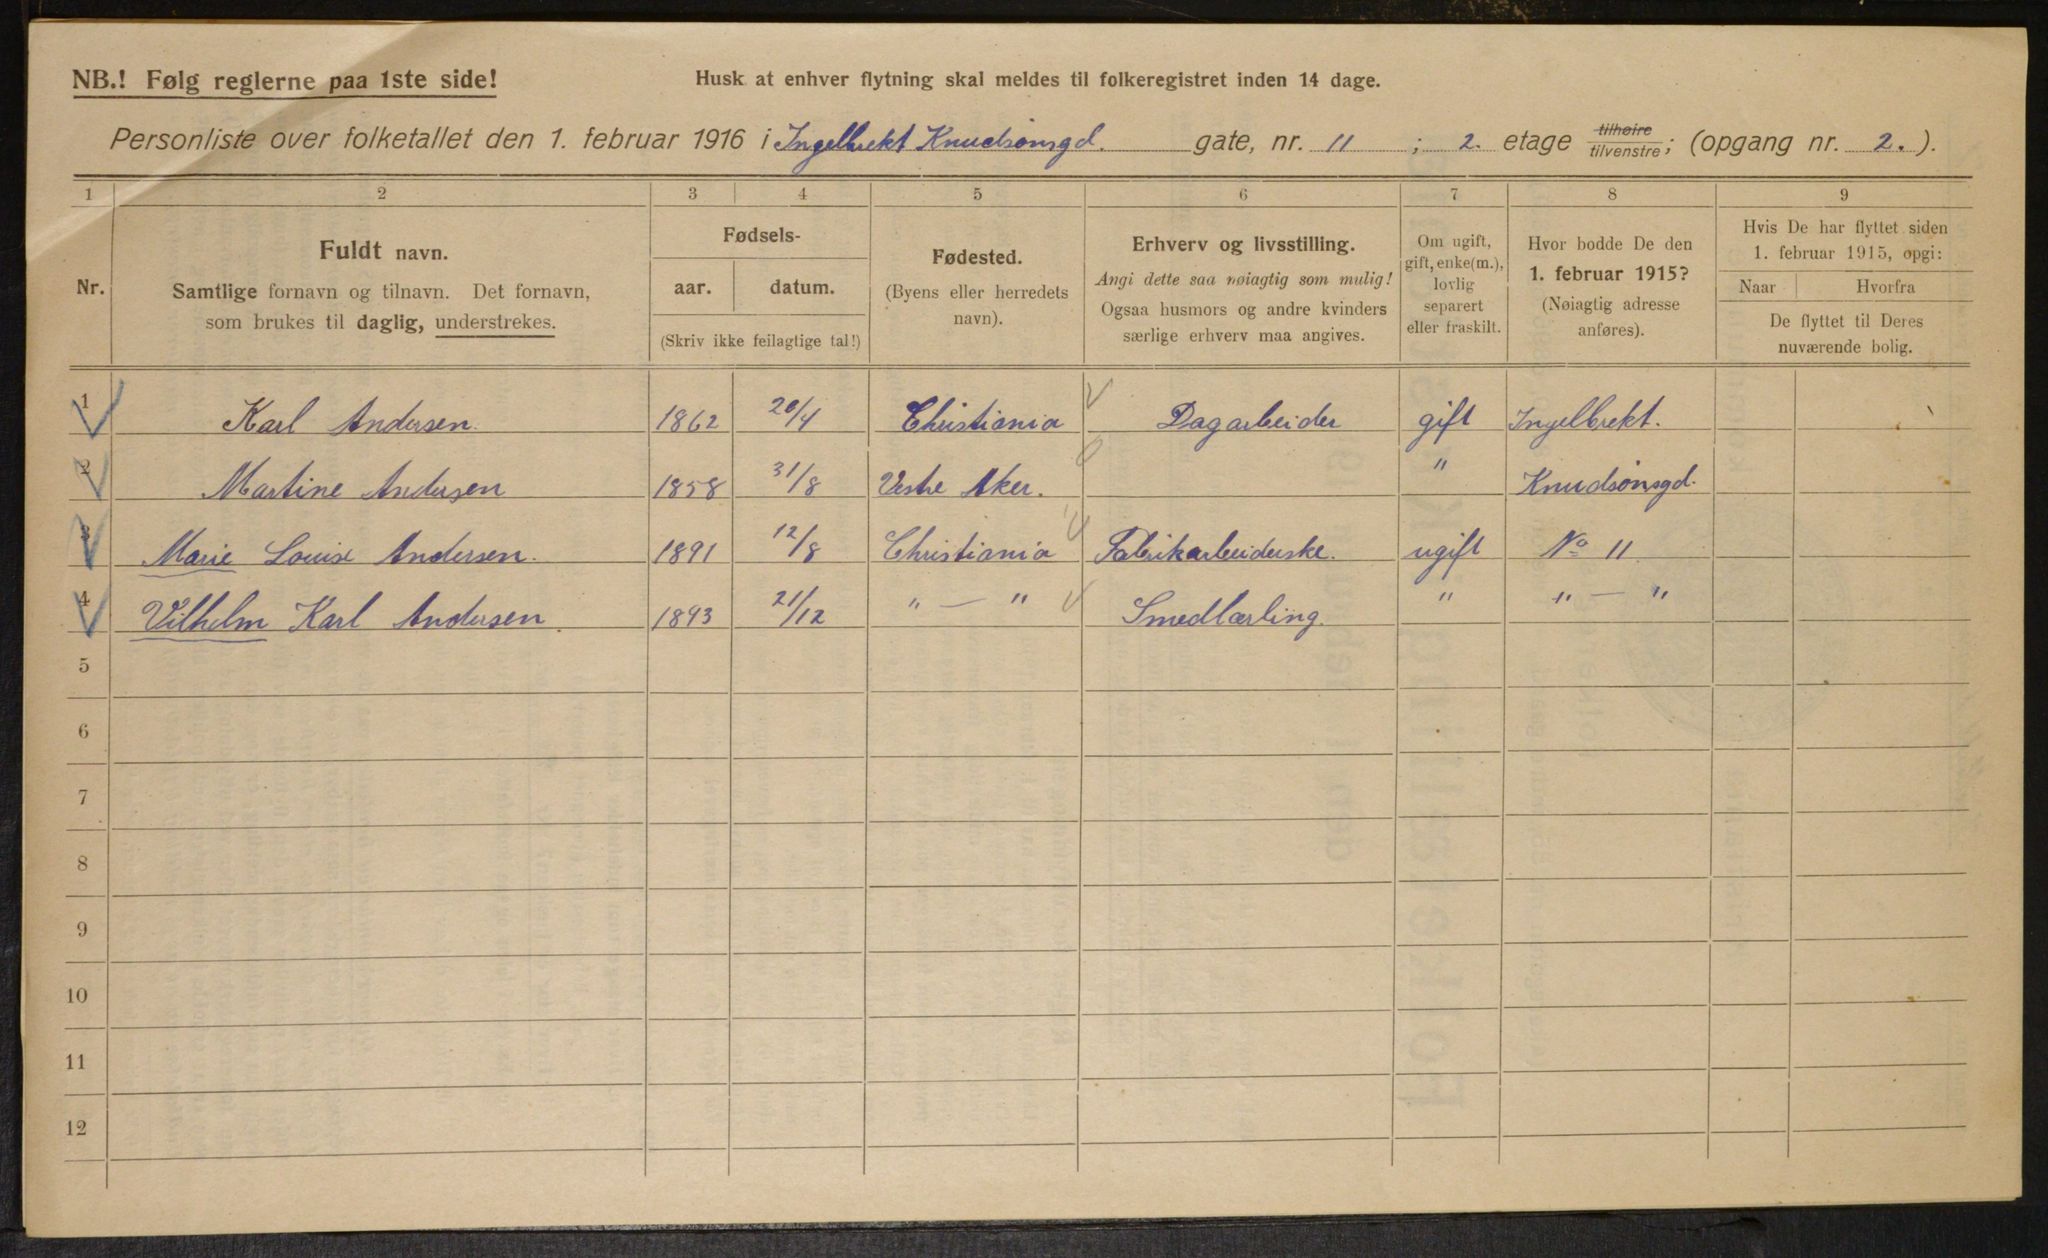 NB.! Følg reglerne paa 1ste side!
Husk at enhver flytning skal meldes til folkeregistret inden 14 dage.
Personliste over folketallet den 1. februar 1916 i Ingelbrekt Knudsønsgd. gate, nr. 11 ; 2. etage tilhøire/tilvenstre; (opgang nr. 2. ).
1 2 3 4 5 6 7 8 9
Nr.
Fuldt navn.
Samtlige fornavn og tilnavn. Det fornavn,
som brukes til daglig, understrekes.
Fødsels-
aar. datum.
(Skriv ikke feilagtige tal!)
Fødested.
(Byens eller herredets
navn).
Erhverv og livsstilling.
Angi dette saa nøiagtig som mulig!
Ogsaa husmors og andre kvinders
særlige erhverv maa angives.
Om ugift,
gift, enke(m.),
lovlig
separert
eller fraskilt.
Hvor bodde De den
1. februar 1915?
(Nøiagtig adresse
anføres).
Hvis De har flyttet siden
1. februar 1915, opgi:
Naar Hvorfra
De flyttet til Deres
nuværende bolig.
1 Karl Andersen. 1862 20/4 Christiania Dagarbeider gift Ingelbrekt.
2 Martine Andersen 1858 31/8 Vestre Aker. " Knudsønsgd.
3 Marie Louise Andersen. 1891 12/8 Christiania Fabrikarbeiderske. ugift No 11
4 Vilhelm Karl Andersen. 1893 21/12 " — " Smedlærling. " " — "
5
6
7
8
9
10
11
12